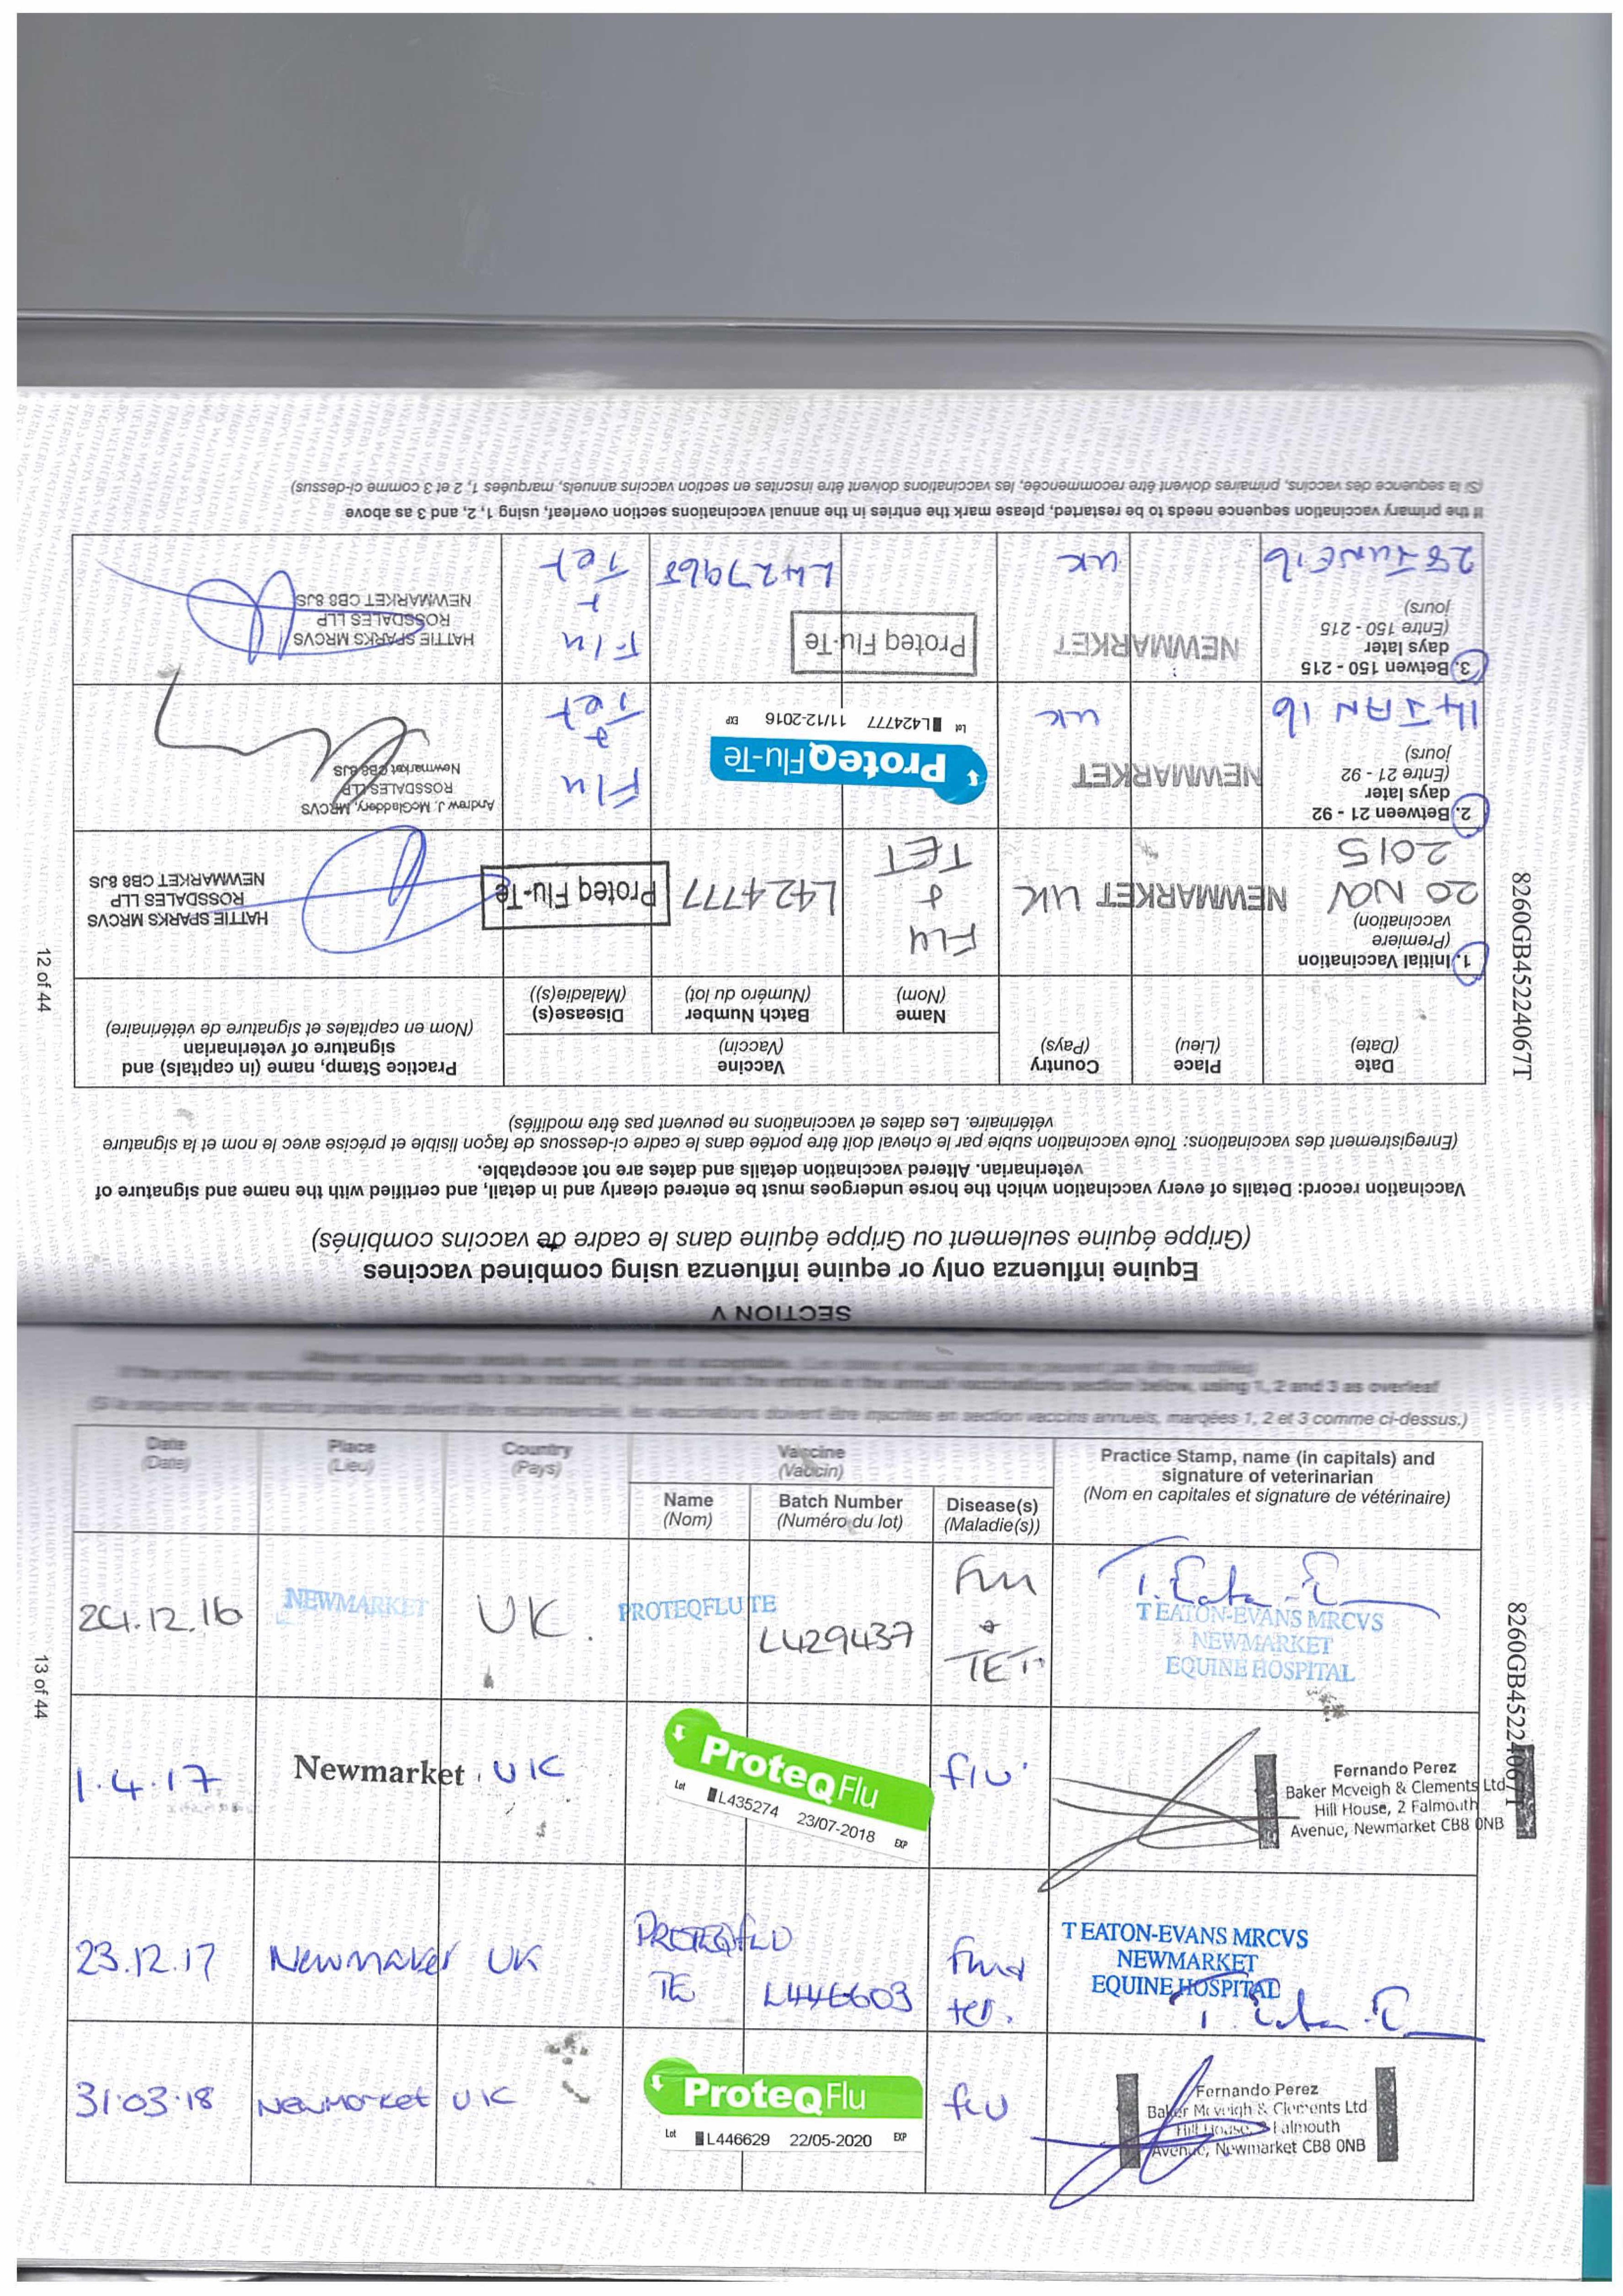 SECTION V
Equine influenza only or equine influenza using combined vaccines
(Grippe équine seulement ou Grippe équine dans le cadre de vaccins combinés)
Vaccination record: Details of every vaccination which the horse undergoes must be entered clearly and in detail, and certified with the name and signature of
veterinarian. Altered vaccination details and dates are not acceptable.
(Enregistrement des vaccinations: Toute vaccination subie par le cheval doit être portée dans le cadre ci-dessous de façon lisible et précise avec le nom et la signature
vétérinaire. Les dates et vaccinations ne peuvent pas être modifiés)
Date
(Date)
Place
(Lieu)
Country
(Pays)
Vaccine
(Vaccin)
Name
(Nom)
Batch Number
(Numéro du lot)
Disease(s)
(Maladie(s))
Practice Stamp, name (in capitals) and
signature of veterinarian
(Nom en capitales et signature de vétérinaire)
1. Initial Vaccination
(Premiere
vaccination)
20 NOV
2015
NEWMARKET UK
FLU
&
TET
L424777
Proteq Flu-Te
HATTIE SPARKS MRCVS
ROSSDALES LLP
NEWMARKET CB8 8JS
2. Between 21 - 92
days later
(Entre 21 - 92
jours)
14 JAN 16
NEWMARKET
UK
ProteqFlu-Te
Lot L424777 11/12-2016 EXP
Flu
&
Tet
Andrew J. McGladdery, MRCVS
ROSSDALES LLP
Newmarket CB8 8JS
3. Betwen 150 - 215
days later
(Entre 150 - 215
jours)
28 JUNE 16
NEWMARKET
UK
Proteq Flu-Te
L427968
Flu
+
Tet
HATTIE SPARKS MRCVS
ROSSDALES LLP
NEWMARKET CB8 8JS
If the primary vaccination sequence needs to be restarted, please mark the entries in the annual vaccinations section overleaf, using 1, 2, and 3 as above
(Si la sequence des vaccins, primaires doivent être recommencée, les vaccinations doivent être inscrites en section vaccins annuels, marquées 1, 2 et 3 comme ci-dessus)
8260GB45224067T
12 of 44
If the primary vaccination sequence needs to be restarted, please mark the entries in the annual vaccinations section below, using 1, 2 and 3 as overleaf
(Si la sequence des vaccins primaires doivent être recommencée, les vaccinations doivent être inscrites en section vaccins annuels, marqées 1, 2 et 3 comme ci-dessus.)
Date
(Date)
Place
(Lieu)
Country
(Pays)
Vaccine
(Vaccin)
Name
(Nom)
Batch Number
(Numéro du lot)
Disease(s)
(Maladie(s))
Practice Stamp, name (in capitals) and
signature of veterinarian
(Nom en capitales et signature de vétérinaire)
24.12.16
NEWMARKET
UK.
PROTEQFLU TE
L429437
Flu
&
TET.
T. Eaton-E
T EATON-EVANS MRCVS
NEWMARKET
EQUINE HOSPITAL
1.4.17
Newmarket
UK
ProteqFlu
Lot L435274 23/07-2018 EXP
flu
Fernando Perez
Baker Mcveigh & Clements Ltd
Hill House, 2 Falmouth
Avenue, Newmarket CB8 0NB
23.12.17
Newmaket
UK
PROTEQFLU
TE
L446603
Flu &
tet.
T EATON-EVANS MRCVS
NEWMARKET
EQUINE HOSPITAL
T. Eaton-E
31.03.18
Newmarket
UK
ProteqFlu
Lot L446629 22/05-2020 EXP
flu
Fernando Perez
Baker Mcveigh & Clements Ltd
Hill House, 2 Falmouth
Avenue, Newmarket CB8 0NB
8260GB45224067T
13 of 44